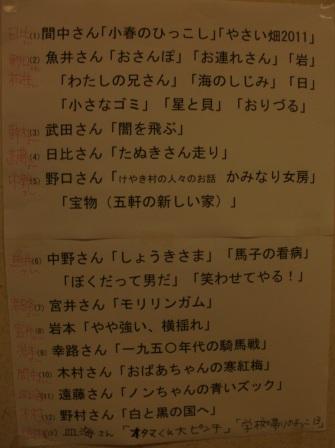 (1) 間中さん「小春のひっこし」「やさい畑2011」
(2) 魚井さん「おさんぽ」「お連れさん」「岩」
「わたしの兄さん」「海のしじみ」「日」
「小さなゴミ」「星と貝」「おりづる」
(3) 武田さん「闇を飛ぶ」
(4) 日比さん「たぬきさん走り」
(5) 野口さん「けやき村の人々のお話 かみなり女房」
「宝物（五軒の新しい家）」
(6) 中野さん「しょうきさま」「馬子の看病」
「ぼくだって男だ」「笑わせてやる！」
(7) 宮井さん「モリリンガム」
(8) 岩本「やや強い、横揺れ」
(9) 幸路さん「一九五〇年代の騎馬戦」
(10) 木村さん「おばあちゃんの寒紅梅」
(11) 遠藤さん「ノンちゃんの青いズック」
(12) 野村さん「白と黒の国へ」
皿海さん「オタマくん大ピンチ」